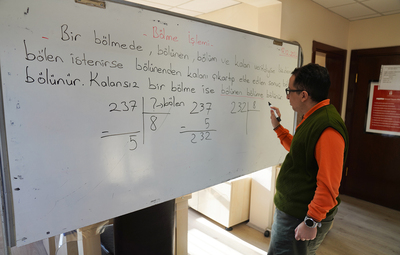 - Bölme İşlemi
- Bir bölmede, bölünen, bölüm ve kalan
bölen istenirse bölünenden kalanı çıkartıp elde edilen
bölünür. Kalansız bir bölme ise bölünen bölüme bölünür.
237 ? → bölen 237 232 8
8 5
5 232